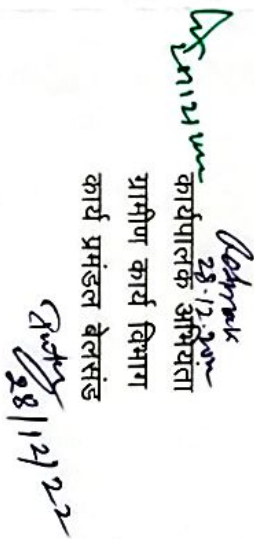 28.12.2022
कार्यपालक अभियंता
ग्रामीण कार्य विभाग
कार्य प्रमंडल बेलसंड
28/12/22